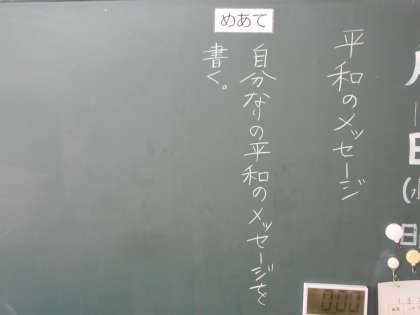 平和のメッセージ
めあて
自分なりの平和のメッセージを
書く。
0:00